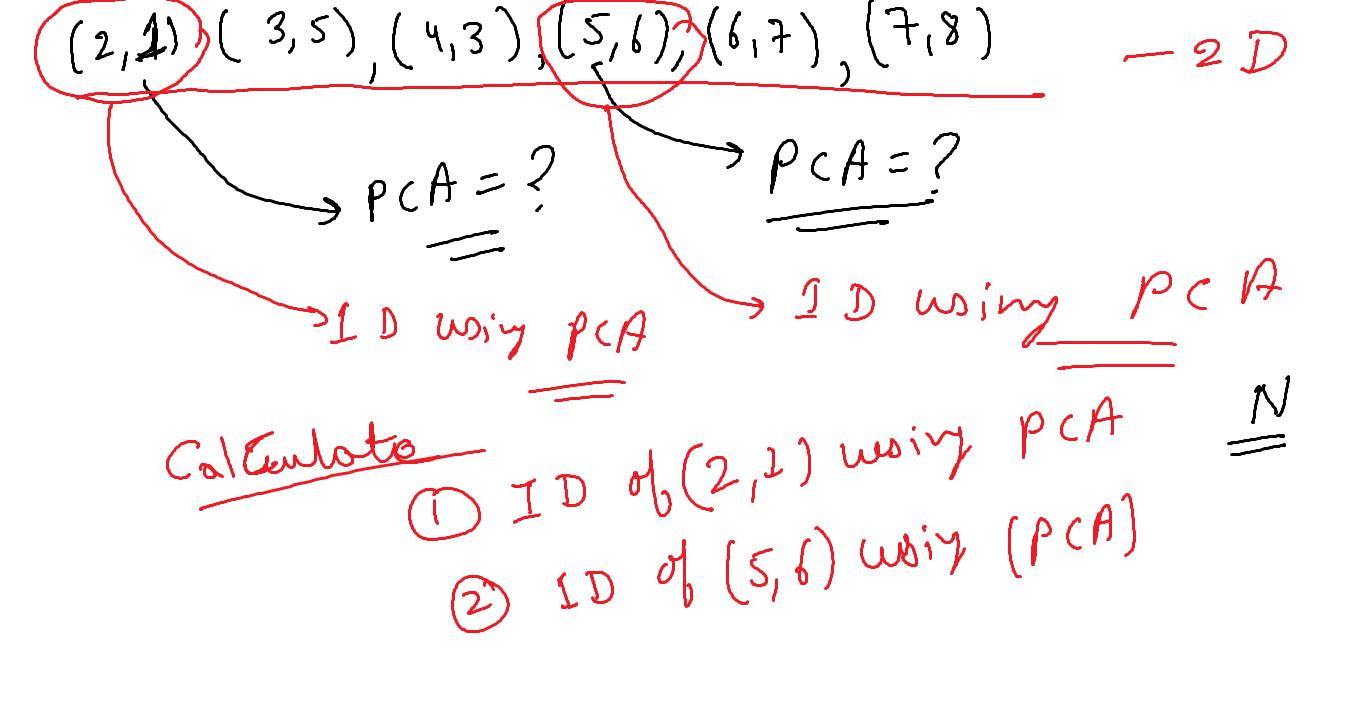 (2,1), (3,5), (4,3), (5,6), (6,7), (7,8) — 2D
PCA = ? PCA = ?
1D using PCA 1D using PCA
N
Calculate
① 1D of (2,1) using PCA
② 1D of (5,6) using (PCA)